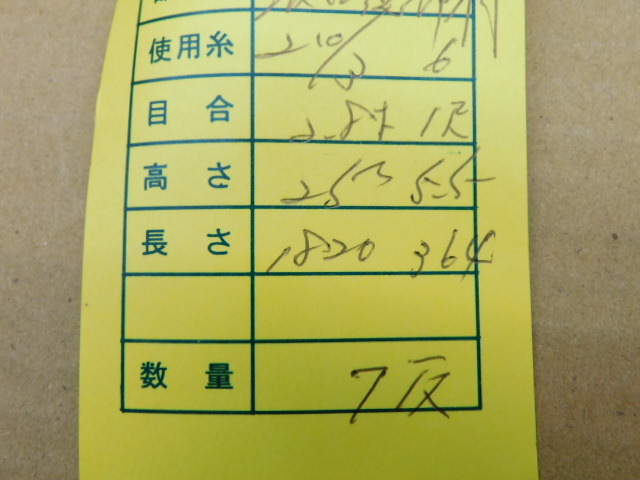 使用糸 210/13 6
目合 2.8寸 1尺
高さ 25 5.5
長さ 1820 364
数量 7反